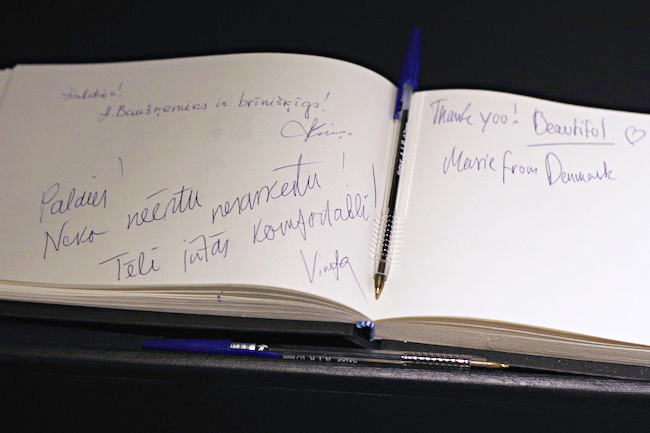 Paldies!
A. Baušķenieks ir brīnišķīgs!
Paldies!
Neko nečertu nesarkertu!
Tēli jūtās komfortabli!
Thank you! Beautiful ♡
Marie from Denmark